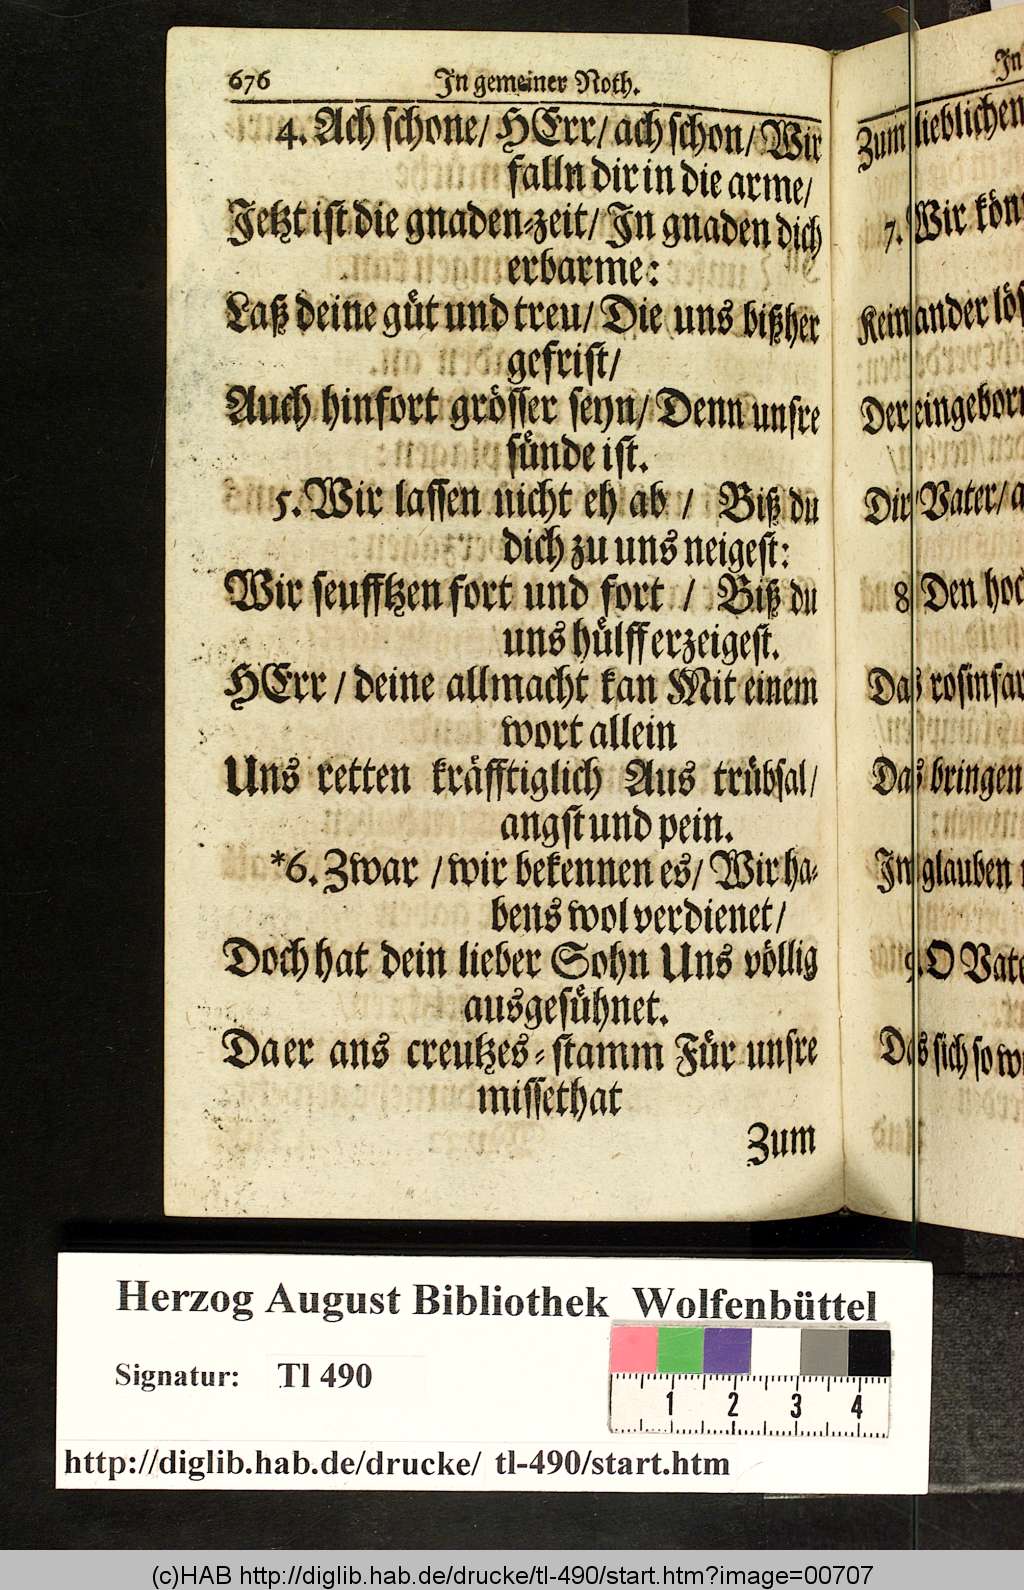 676 In gemeiner Noth.
4. Ach schone/ HErr/ ach schon/ Wir
falln dir in die arme/
Jetzt ist die gnaden-zeit/ In gnaden dich
erbarme:
Laß deine güt und treu/ Die uns bißher
gefrist/
Auch hinfort grösser seyn/ Denn unsre
sünde ist.
5. Wir lassen nicht eh ab / Biß du
dich zu uns neigest:
Wir seufftzen fort und fort / Biß du
uns hülff erzeigest.
HErr / deine allmacht kan Mit einem
wort allein
Uns retten kräfftiglich Aus trübsal/
angst und pein.
*6. Zwar / wir bekennen es/ Wir ha-
bens wol verdienet/
Doch hat dein lieber Sohn Uns völlig
ausgesühnet.
Da er ans creutzes-stamm Für unsre
missethat
Zum
In
Zum lieblichen
7. Wir
Kein ander
Der
Dir/ Vater/
8 Den
Das
Das bringen
Im glauben
9. O
Das sich so
Herzog August Bibliothek Wolfenbüttel
Signatur: Tl 490
1 2 3 4
http://diglib.hab.de/drucke/ tl-490/start.htm
(c)HAB http://diglib.hab.de/drucke/tl-490/start.htm?image=00707